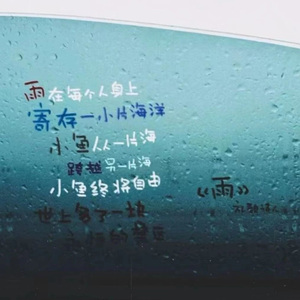 雨在每个人身上
寄存一小片海洋
小鱼从一片海
跨越另一片海
小鱼终将自由
世上多了一块
的
《雨》